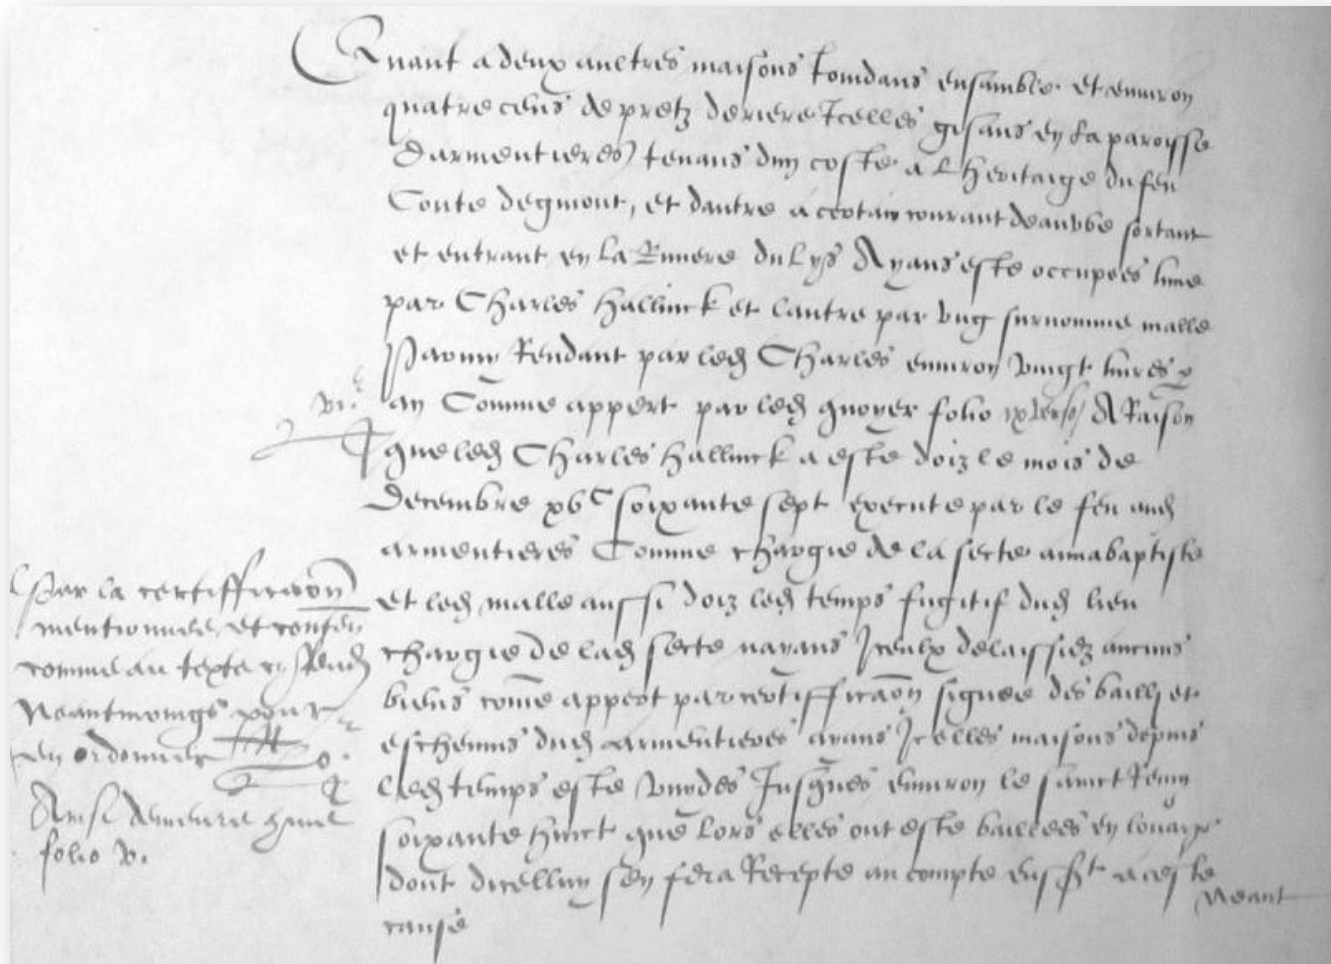 Quant a deux aultres maisons tomdans ensamble et environ
quatre cens de pretz deriere Icelles gisans en la paroisse
darmentieres tenans dun coste a lheritaige du feu
Conte degmont, et dautre a certain courant deauwe sortant
et entrant en la Riviere du Lys Ayans este occupees lune
par Charles Hallinck et lautre par ung surnomme malle
Parmy Rendant par led Charles environ vingt livres p
an Comme appert par led quoyer folio ix verso A Raison
que led Charles Hallinck a este doiz le mois de
decembre xvc soixante sept execute par le feu aud
armentieres Comme chargie de la secte annabaptiste
et led malle aussi doiz led temps fugitif dud lieu
chargie de lad secte nayans Iceulx delaissiez aucuns
biens come appert par certifficaon signee des bailly et
eschevins dud armentieres ayans Icelles maisons depuis
led temps este vuydes Jusques environ le sainct Remy
soixante huict que lors elles ont este baillees en louaige
dont dicelluy sen fera Recepte au compte ensst a ceste
cause
Neant
vi.c
Par la certifficaon
mentionnee et
comme au texte
Neantmoings pour
en ordonner
Ainsi demeure
folio v.